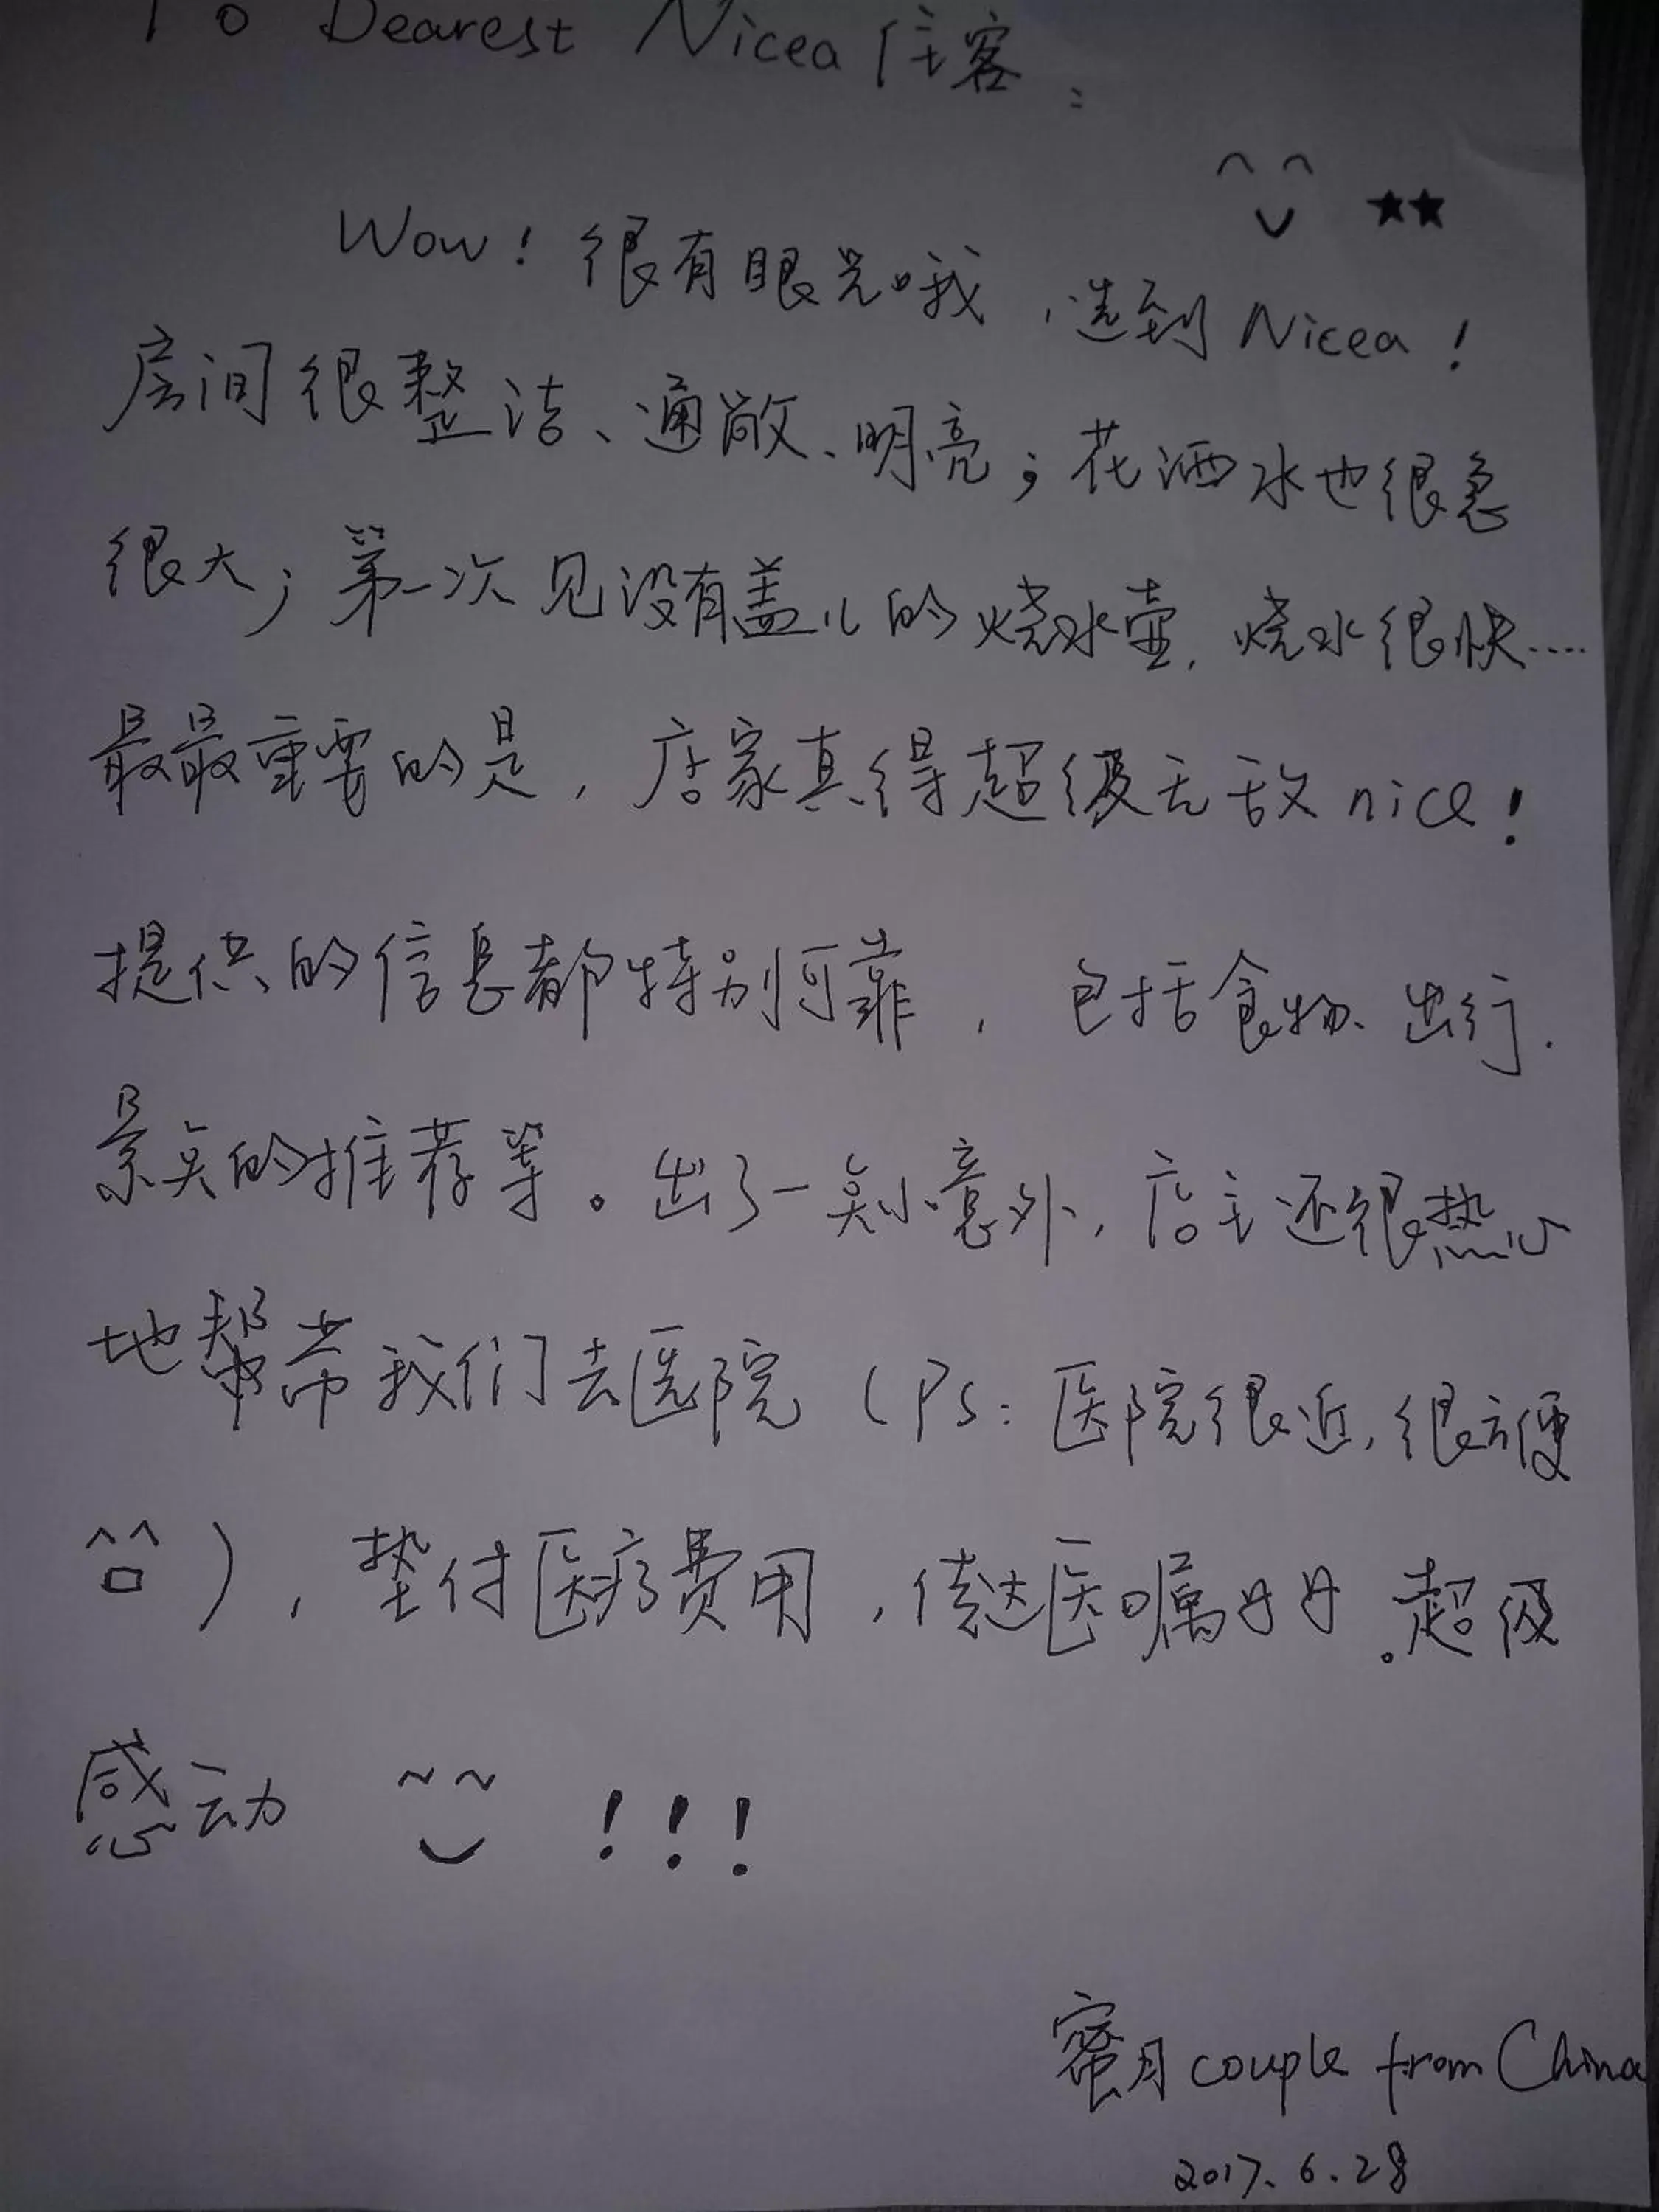 To Dearest Nicea 住客:
Wow! 很有眼光哦,选到Nicea!
房间很整洁、通敞、明亮;花洒水也很急
很大;第一次见没有盖儿的烧水壶,烧水很快....
最最重要的是,店家真得超级无敌nice!
提供的信息都特别可靠,包括食物、出行、
景点的推荐等。出了一点小意外,店主还很热心
地帮带我们去医院(PS:医院很近,很方便
^^),垫付医疗费用,传达医嘱 。超级
感动 ~~ !!!
蜜月couple from China
2017.6.28